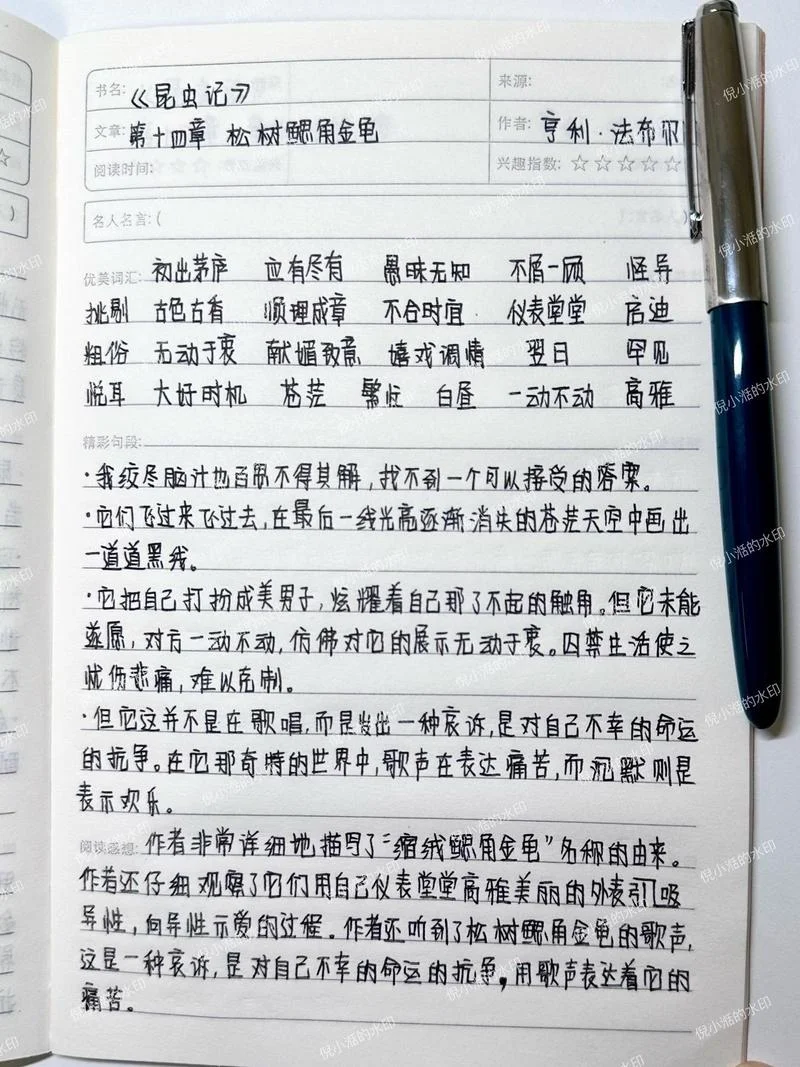 书名:《昆虫记》 来源:
文章:第十四章 松树鳃角金龟 作者: 亨利·法布尔
阅读时间: 兴趣指数:☆☆☆☆☆
名人名言:(
优美词汇: 初出茅庐 应有尽有 愚昧无知 不屑一顾 怪异
挑剔 古色古香 顺理成章 不合时宜 仪表堂堂 启迪
粗俗 无动于衷 献媚致意 嬉戏调情 翌日 罕见
悦耳 大好时机 苍茫 繁忙 白昼 一动不动 高雅
精彩句段:
·我绞尽脑汁也百思不得其解,找不到一个可以接受的答案。
·它们飞过来飞过去,在最后一线光亮逐渐消失的苍茫天空中画出
一道道黑线。
·它把自己打扮成美男子,炫耀着自己那了不起的触角。但它未能
遂愿,对方一动不动,仿佛对它的展示无动于衷。囚禁生活使之
忧伤悲痛,难以克制。
·但它这并不是在歌唱,而是发出一种哀诉,是对自己不幸的命运
的抗争。在它那奇特的世界中,歌声在表达痛苦,而沉默则是
表示欢乐。
阅读感想: 作者非常详细地描写了“缩绒鳃角金龟”名称的由来。
作者还仔细观察了它们用自己仪表堂堂高雅美丽的外表引吸
异性,向异性示爱的过程。作者还听到了松树鳃角金龟的歌声,
这是一种哀诉,是对自己不幸的命运的抗争,用歌声表达着它的
痛苦。
倪小湉的水印